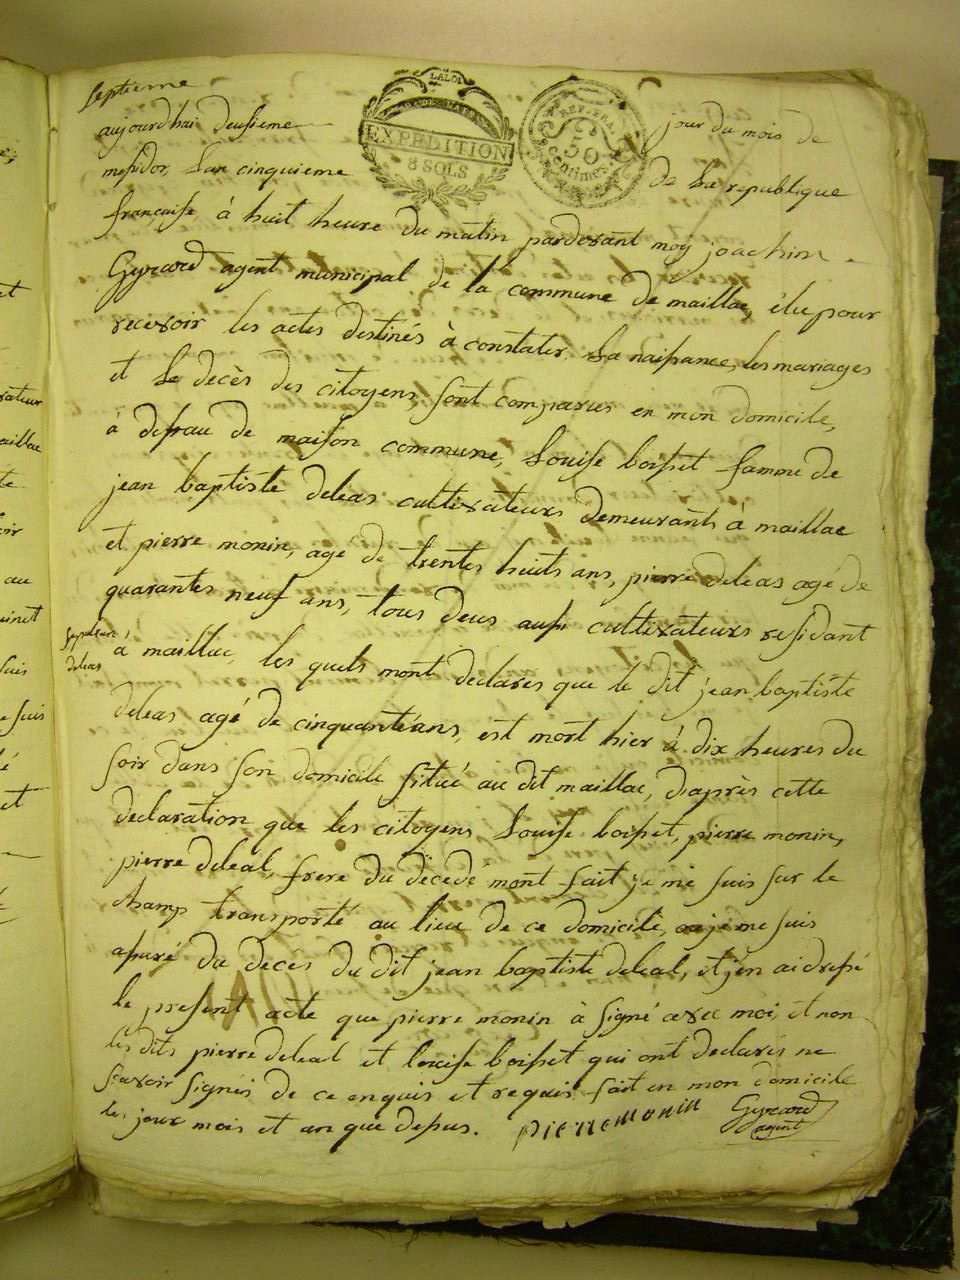 septieme
LA LOI
EXPEDITION
8 SOLS
REP. FRA.
50
centimes
aujourdhui deusieme jour du mois de
mesidor, Lan cinquieme de La republique
française, à huit heure du matin pardevant moy joachim
Gyrard agent municipal de la commune de maillac, élu pour
recevoir les actes destinés à constater La naissance, les mariages
et Le decès des citoyens, sont comparus en mon domicile,
à defau de maison commune, Louise boisset famme de
jean baptiste deleas cultivateurs demeurants à maillac
et pierre monin, agé de trentes huits ans, pierre deleas agé de
quarantes neuf ans, tous deus aussi cultivateurs residant
à maillac, les quels mont declarés que le dit jean baptiste
deleas
deleas agé de cinquante ans, est mort hier à dix heures du
soir dans son domicile situé au dit maillac, daprès cette
declaration que les citoyens Louise boisset, pierre monin,
pierre deleal, frere du décédé mont fait je me suis sur le
champ transporté au lieu de ce domicile, ou je me suis
assuré du decés du dit jean baptiste deleal, et j'en ai dressé
le present acte que pierre monin à signé avec moi, et non
les dits pierre deleal et louise boisset qui ont declarés ne
scavoir signés de ce enquis et requis fait en mon domicile
les jour mois et an que desus. pierre monin Gyrard
agent